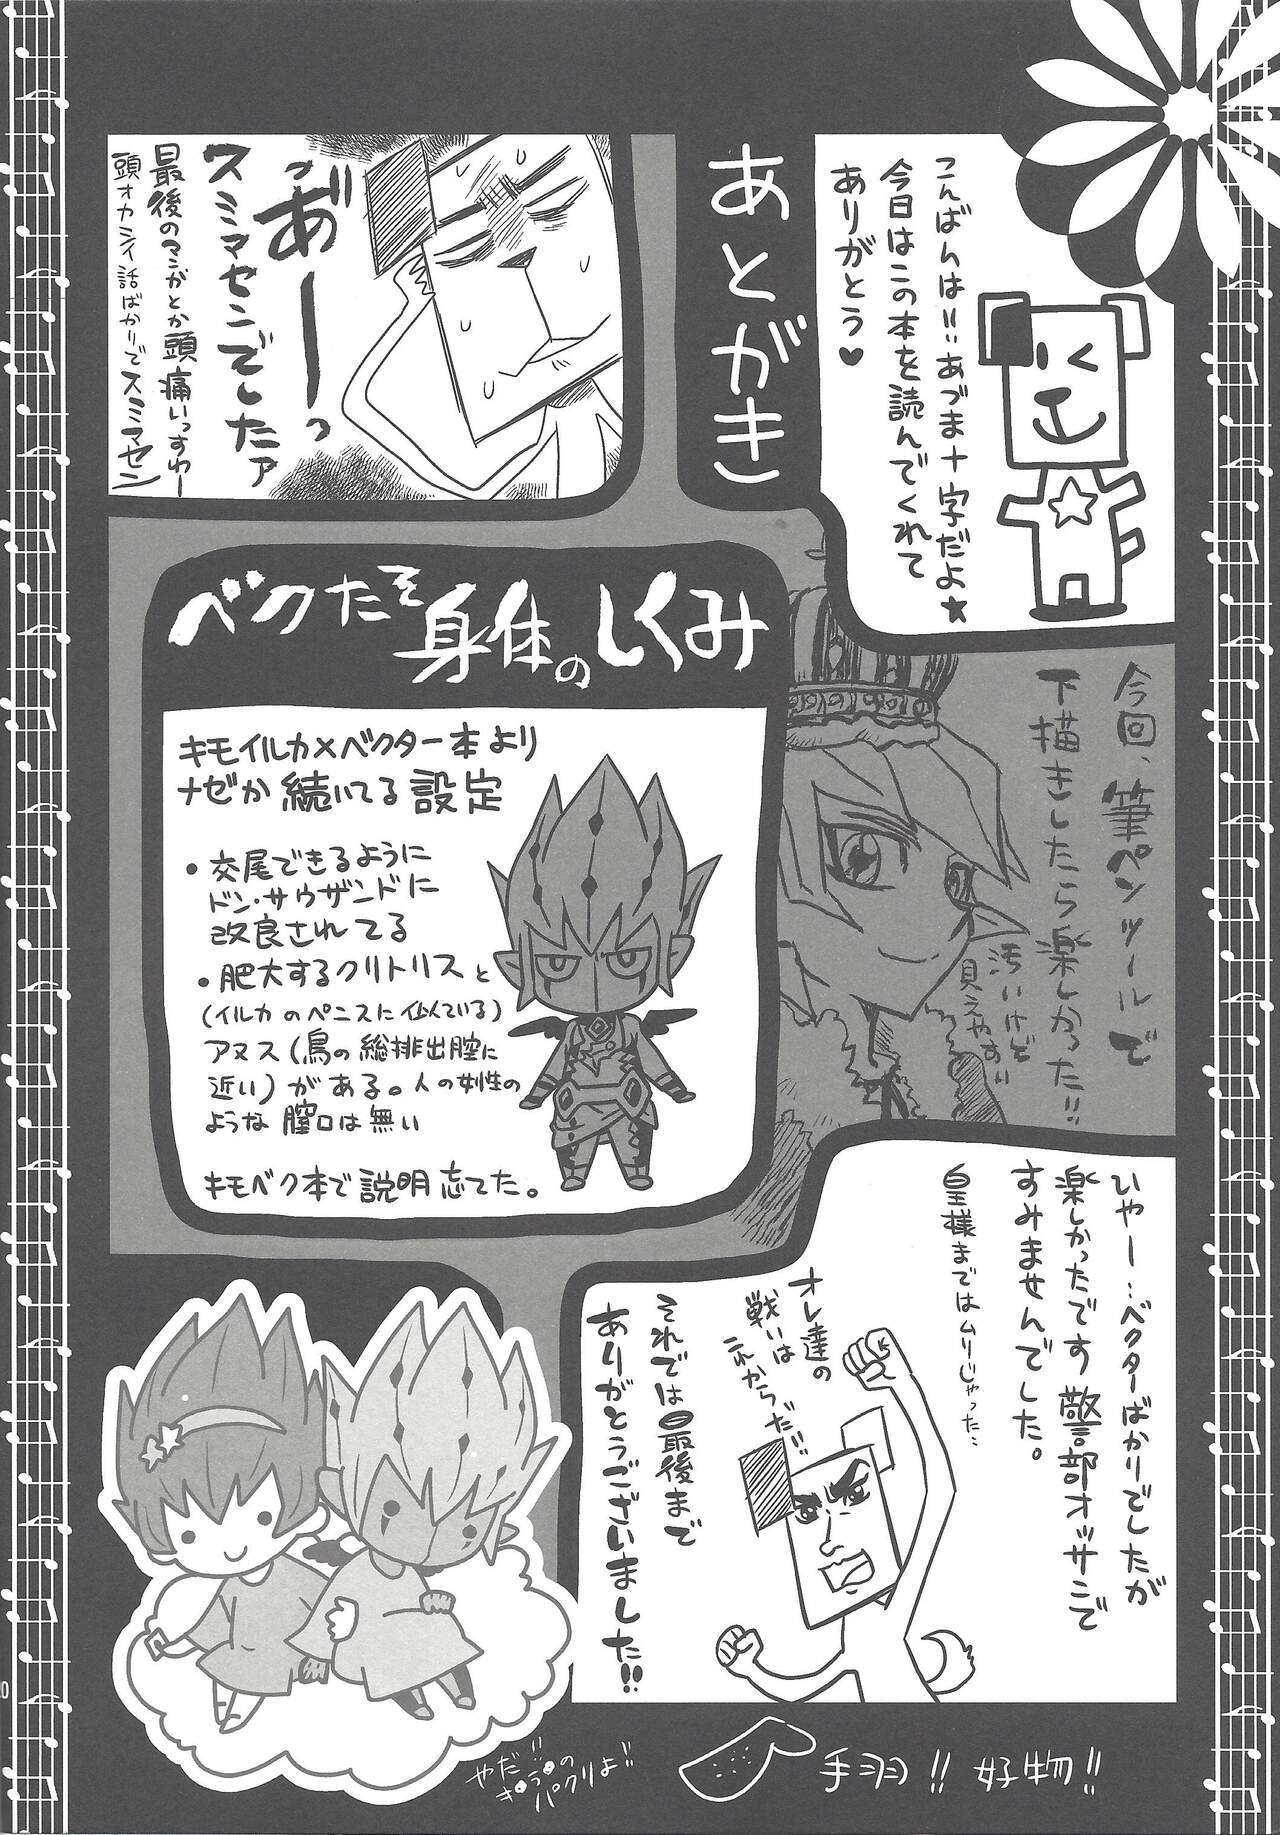 こんばんは!!あづま十字だよ★
今日はこの本を読んでくれて
ありがとう♥
あとがき
あ゛ーーっ
スミマセンでしたァ
最後のマンガとか頭痛いっすわー
頭オカシイ話ばかりでスミマセン
今回、筆ペンツールで
下描きしたら楽しかった!!
汚いけど
見えやすい
ベクたそ身体のしくみ
キモイルカ×ベクター本より
ナゼか続いてる設定
・交尾できるように
ドン・サウザンドに
改良されてる
・肥大するクリトリスと
(イルカのペニスに似ている)
アヌス(鳥の総排出腔に
近い)がある。人の女性の
ような膣口は無い
キモベク本で説明忘れてた。
いやー…ベクターばかりでしたが
楽しかったです警部オッサンで
すみませんでした。
皇様まではムリじゃった…
オレ達の
戦いは
これからだ!!
それでは最後まで
ありがとうございました!!
やだ!!
き○う○の
パクリよ!!
手羽!! 好物!!